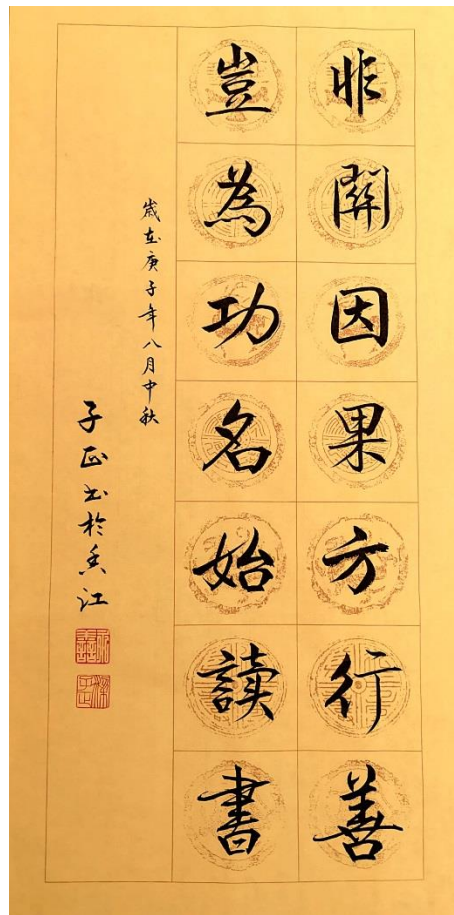 非關因果方行善
豈為功名始讀書
歲在庚子年八月中秋
子正书於香江